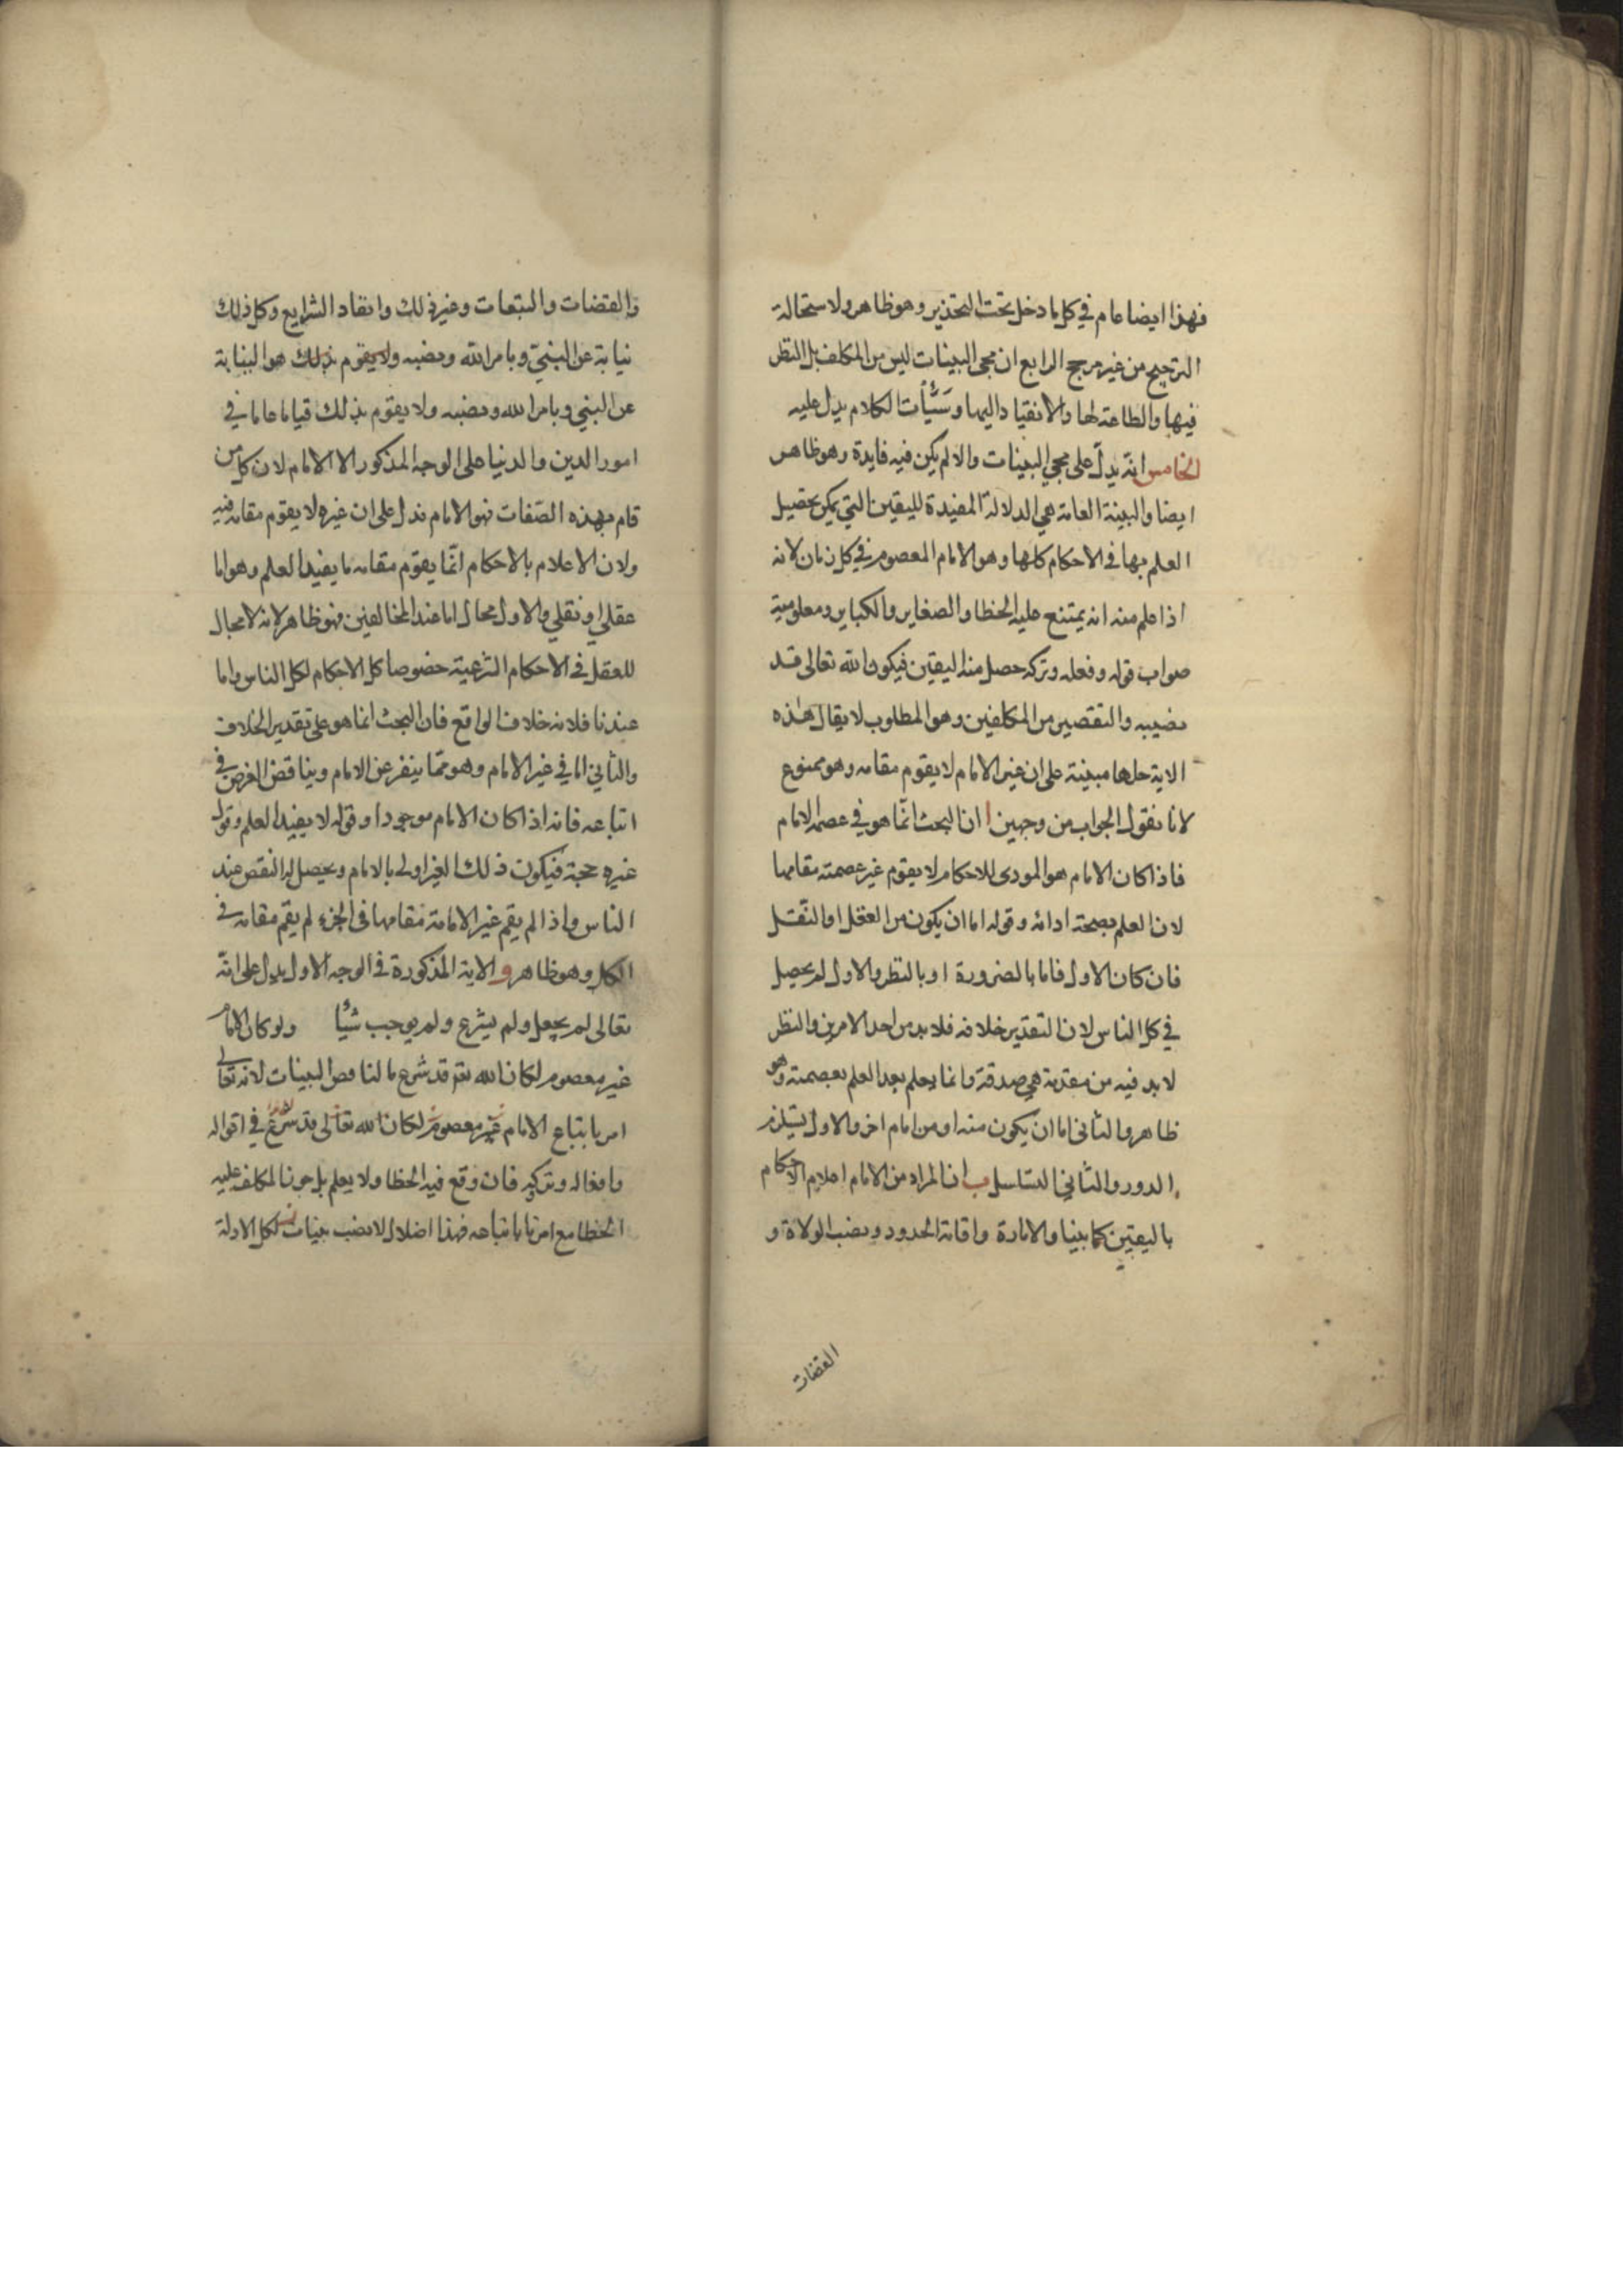 فهذا ايضا عام في كل ما دخل تحت التحذير وهو ظاهر ولاستحالة
الترجيح من غير مرجح الرابع ان مجى البينات ليس من المكلف بل النظر
فيها والطاعة لها والانقياد اليها وسيأت الكلام يدل عليه
الخامس انه يدل على مجي البينات والا لم يكن فيه فايدة وهو ظاهر
ايضا والبينة العامة هي الدلالة المفيدة لليقين التي يمكن تحصيل
العلم بها في الاحكام كلها وهو الامام المعصوم في كل زمان لانه
اذا علم منه انه يمتنع عليه الخطا والصغاير والكباير ومعلومية
صواب قوله وفعله وتركه حصل منه اليقين فيكون الله تعالى قد
نصبه والتقصير من المكلفين وهو المطلوب لا يقال هذه
الاية حلها مبينة على ان غير الامام لا يقوم مقامه وهو ممنوع
لانا نقول الجواب من وجهين ا ان البحث انما هو في عصمة الامام
فاذا كان الامام هو المودى للاحكام لا يقوم غير عصمته مقامها
لان العلم بصحة ادائه وقوله اما ان يكون من العقل او النقل
فان كان الاول فاما بالضرورة او بالنظر والاول لم يحصل
في كل الناس لان التقدير خلافه فلا بد من احد الامرين والنظر
لا بد فيه من مقدمة هي صدقه وانما يعلم بعد العلم بعصمته وهو
ظاهر والثانى اما ان يكون منه او من امام اخر والاول يستلزم
الدور والثاني التسلسل ب ان المراد من الامام اعلام الاحكام
باليقين كما بينا والامارة واقامة الحدود ونصب الولاة و
القضات
والقضات والتبعات وغير ذلك وانقاد الشرايع وكل ذلك
نيابة عن النبي وبامر الله ونصبه ولا يقوم بذلك هو النيابة
عن النبي وبامر الله ونصبه ولا يقوم بذلك قياما عاما في
امور الدين والدنيا على الوجه المذكور الا الامام لان كل من
قام بهذه الصفات فهو الامام فدل على ان غيره لا يقوم مقامه فيه
ولان الاعلام بالاحكام انما يقوم مقامه ما يفيد العلم وهو اما
عقلي او نقلي والاول محال اما عند المخالفين فهو ظاهر لانه لا مجال
للعقل في الاحكام الشرعية خصوصا كل الاحكام لكل الناس واما
عندنا فلانه خلاف الواقع فان البحث انما هو على تقدير الخلاف
والثاني اما في غير الامام وهو مما ينفر عن الامام ويناقض الغرض في
اتباعه فانه اذا كان الامام موجودا وقوله لا يفيد العلم وقول
غيره حجة فيكون ذلك الغير اولى بالامام ويحصل له النقص عند
الناس واذا لم يقم غير الامامة مقامها في الجزء لم يقم مقامه في
الكل وهو ظاهر و الاية المذكورة في الوجه الاول يدل على انه
تعالى لم يجعل ولم يشرع ولم يوجب شيأ ولو كان الامام
غير معصوم لكان الله تعم قد شرع ما لنا البينات لانه تعالى
امر باتباع الامام غير معصوم لكان الله تعالى قد شرع في اقواله
وافعاله وتركه فان وقع فيه الخطا ولا يعلم بل جوز المكلف عليه
الخطا مع امرنا باتباعه فهذا اضلال لا نصب بينات لكل الادلة